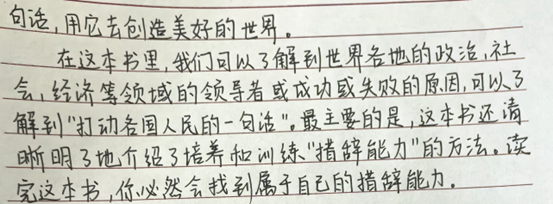 句话，用它去创造美好的世界。
在这本书里，我们可以了解到世界各地的政治，社
会，经济等领域的领导者或成功或失败的原因，可以了
解到“打动各国人民的一句话”。最主要的是，这本书还清
晰明了地介绍了培养和训练“措辞能力”的方法。读
完这本书，你必然会找到属于自己的措辞能力。